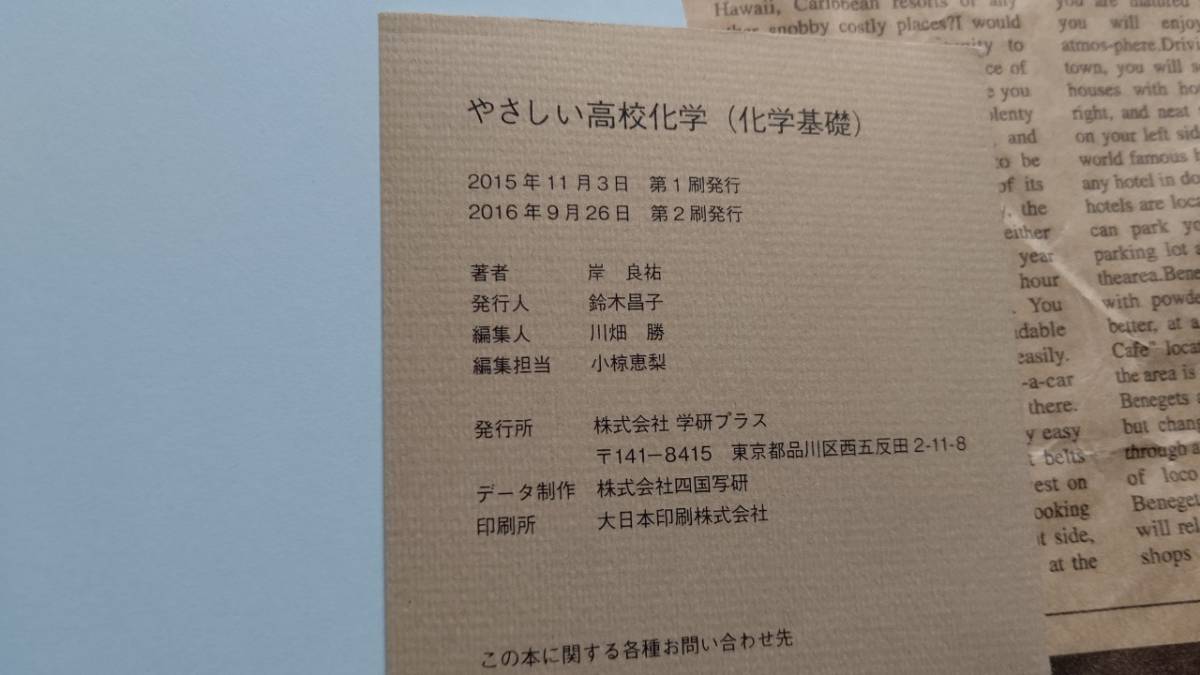 やさしい高校化学（化学基礎）
2015年11月3日　第1刷発行
2016年9月26日　第2刷発行
著者　岸　良祐
発行人　鈴木昌子
編集人　川畑　勝
編集担当　小椋恵梨
発行所　株式会社 学研プラス
〒141−8415　東京都品川区西五反田2-11-8
データ制作　株式会社四国写研
印刷所　大日本印刷株式会社
この本に関する各種お問い合わせ先
Hawaii, Caribbean resorts or any
snobby costly places?I would
to
ce of
you
plenty
and
to be
of its
the
either
year
hour
. You
easily.
-a-car
there.
y easy
belts
est on
ooking
side,
at the
you will enjoy
atmos-phere.Drivi
town, you will s
houses with ho
right, and neat
on your left sid
world famous
any hotel in do
hotels are loca
can park yo
parking lot a
thearea.Bene
with powde
better, at a
Cafe" locat
the area is
Benegets a
but chang
through a
of loco
Benege
will rel
shops